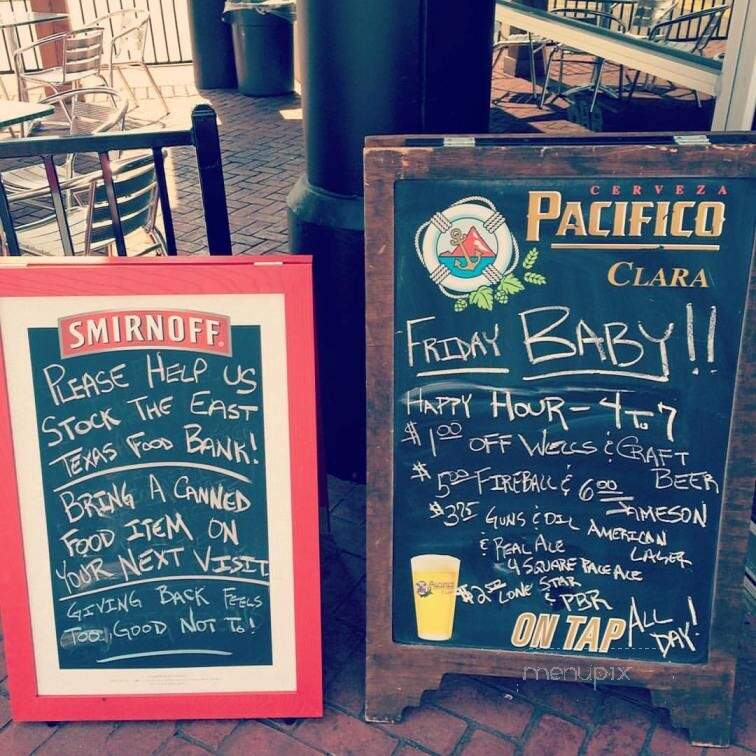 SMIRNOFF
PLEASE HELP US
STOCK THE EAST
TEXAS FOOD BANK!
BRING A CANNED
FOOD ITEM ON
YOUR NEXT VISIT
GIVING BACK FEELS
TOO GOOD NOT TO!
CERVEZA
PACIFICO
CLARA
FRIDAY BABY!!
HAPPY HOUR - 4 TO 7
$1.00 OFF WELLS & CRAFT
BEER
$5.00 FIREBALL & 6.00
JAMESON
$3.75 GUNS & OIL AMERICAN
LAGER
& REAL ALE
4 SQUARE PALE ALE
LONE STAR
& PBR
ON TAP ALL
DAY!
menupix